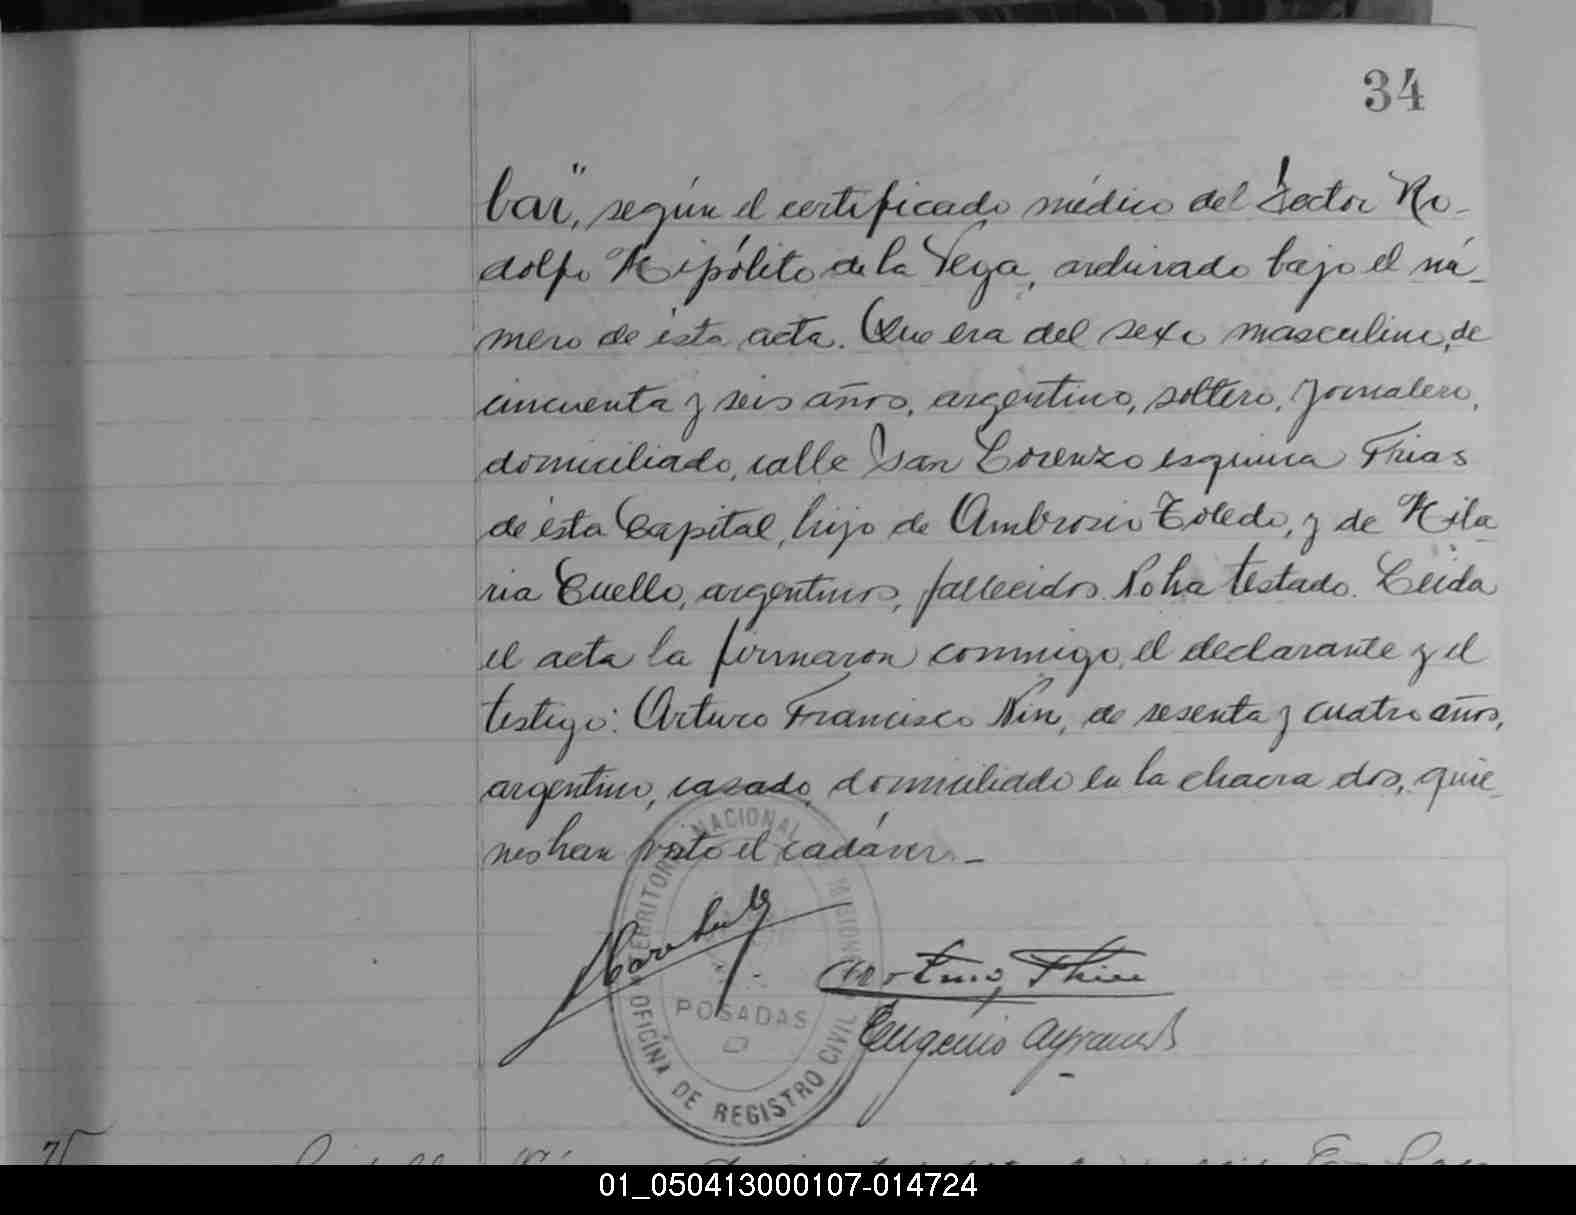 34
bar", según el certificado médico del Doctor Ro-
dolfo Hipólito de la Vega, archivado bajo el nú-
mero de ésta acta. Que era del sexo masculino, de
cincuenta y seis años, argentino, soltero, Jornalero,
domiciliado, calle San Lorenzo esquina Frias
de ésta Capital, hijo de Ambrosio Toledo, y de Hila
ria Cuello, argentinos, fallecidos. No ha testado. Leida
el acta la firmaron conmigo, el declarante y el
testigo: Arturo Francisco Nin, de sesenta y cuatro años,
argentino, casado, domiciliado en la chacra dos, quie-
nes han visto el cadáver.-
TERRITORIO NACIONAL DE MISIONES
POSADAS
OFICINA DE REGISTRO CIVIL
Arturo
Eugenio
75
01_050413000107-014724